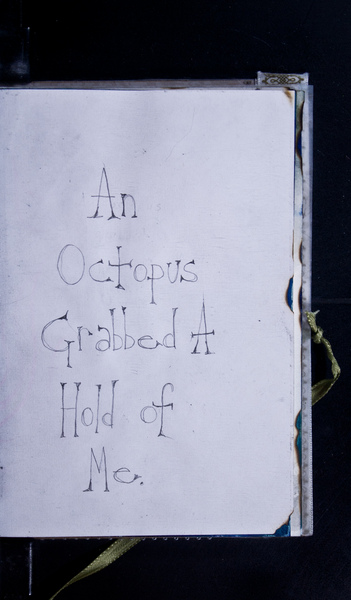 An
Octopus
Grabbed A
Hold of
Me.